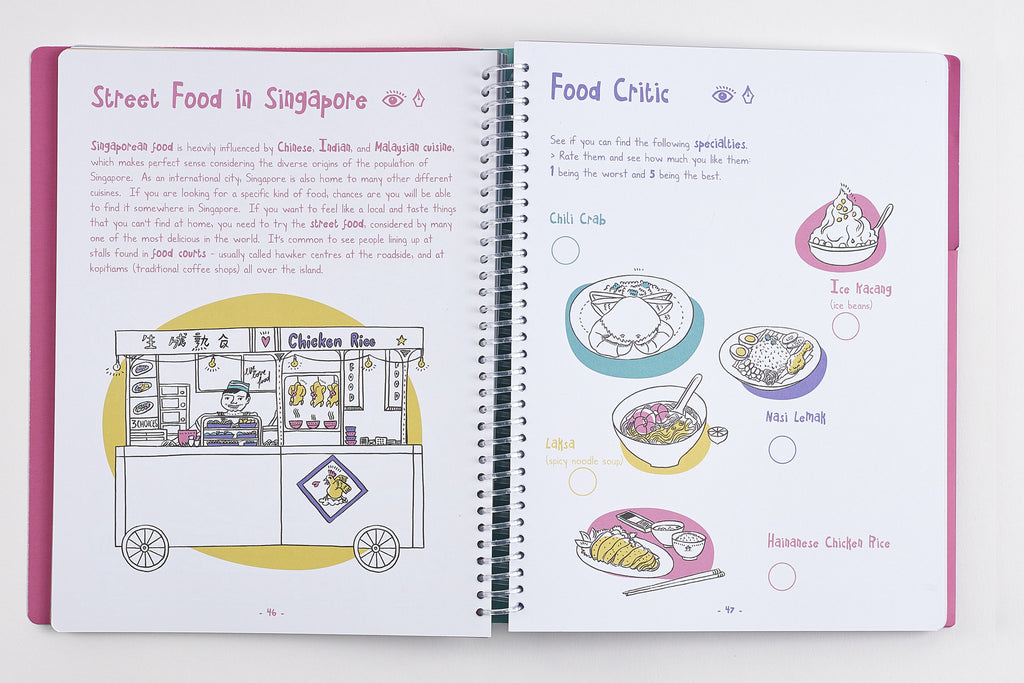 Street Food in Singapore
Singaporean food is heavily influenced by Chinese, Indian, and Malaysian cuisine,
which makes perfect sense considering the diverse origins of the population of
Singapore. As an international city, Singapore is also home to many other different
cuisines. If you are looking for a specific kind of food, chances are you will be able
to find it somewhere in Singapore. If you want to feel like a local and taste things
that you can't find at home, you need to try the street food, considered by many
one of the most delicious in the world. It's common to see people lining up at
stalls found in food courts - usually called hawker centres at the roadside, and at
kopitiams (traditional coffee shops) all over the island.
Chicken Rice
3 CHOICES
- 46 -
Food Critic
See if you can find the following specialties.
> Rate them and see how much you like them:
1 being the worst and 5 being the best.
Chili Crab
Ice Kacang
(ice beans)
Nasi Lemak
Laksa
(spicy noodle soup)
Hainanese Chicken Rice
- 47 -